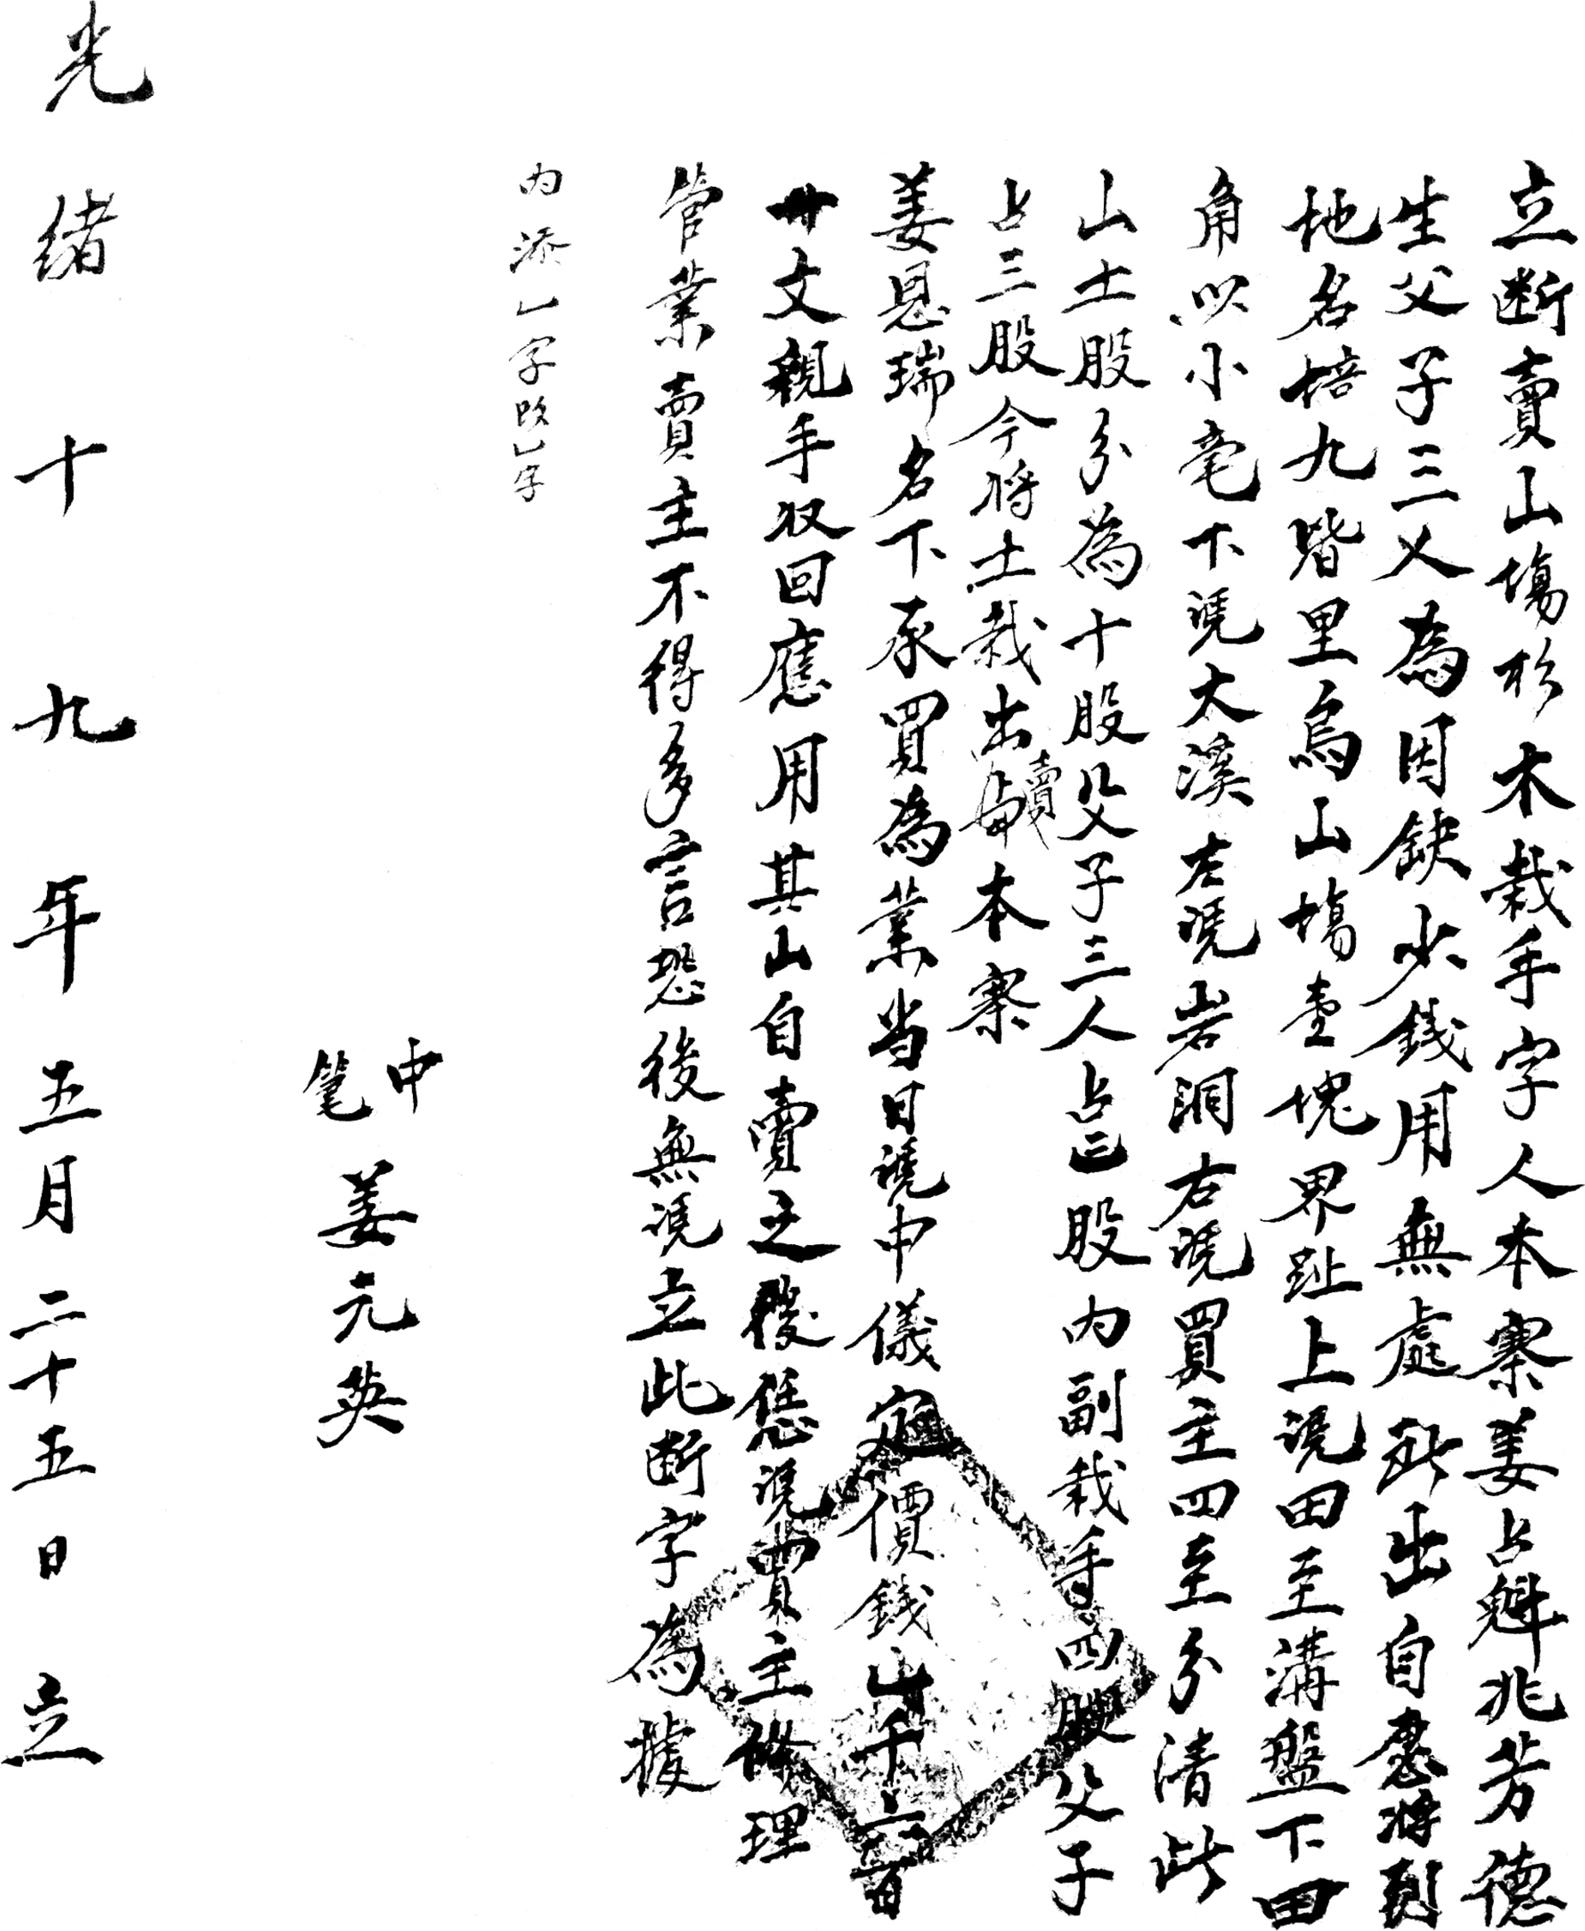 立断賣山塲杉木栽手字人本寨姜占魁兆芳德
生父子三人為因缺少錢用無處所出自愿将到
地名培九皆里烏山塲壹塊界趾上凴田至溝盤下田
角以小毫下凴大溪左凴岩洞右凴買主四至分清此
山土股分為十股父子三人占三股内副栽手四股父子
占三股今将土栽出賣本寨
姜恩瑞名下承買為業当日凴中儀定價錢山千六百
卄文親手収回應用其山自賣之後恁凴買主修理
管業賣主不得多言恐後無凴立此断字為據
内添乚字改乚字
中
筆 姜元英
光緒十九年五月二十五日立